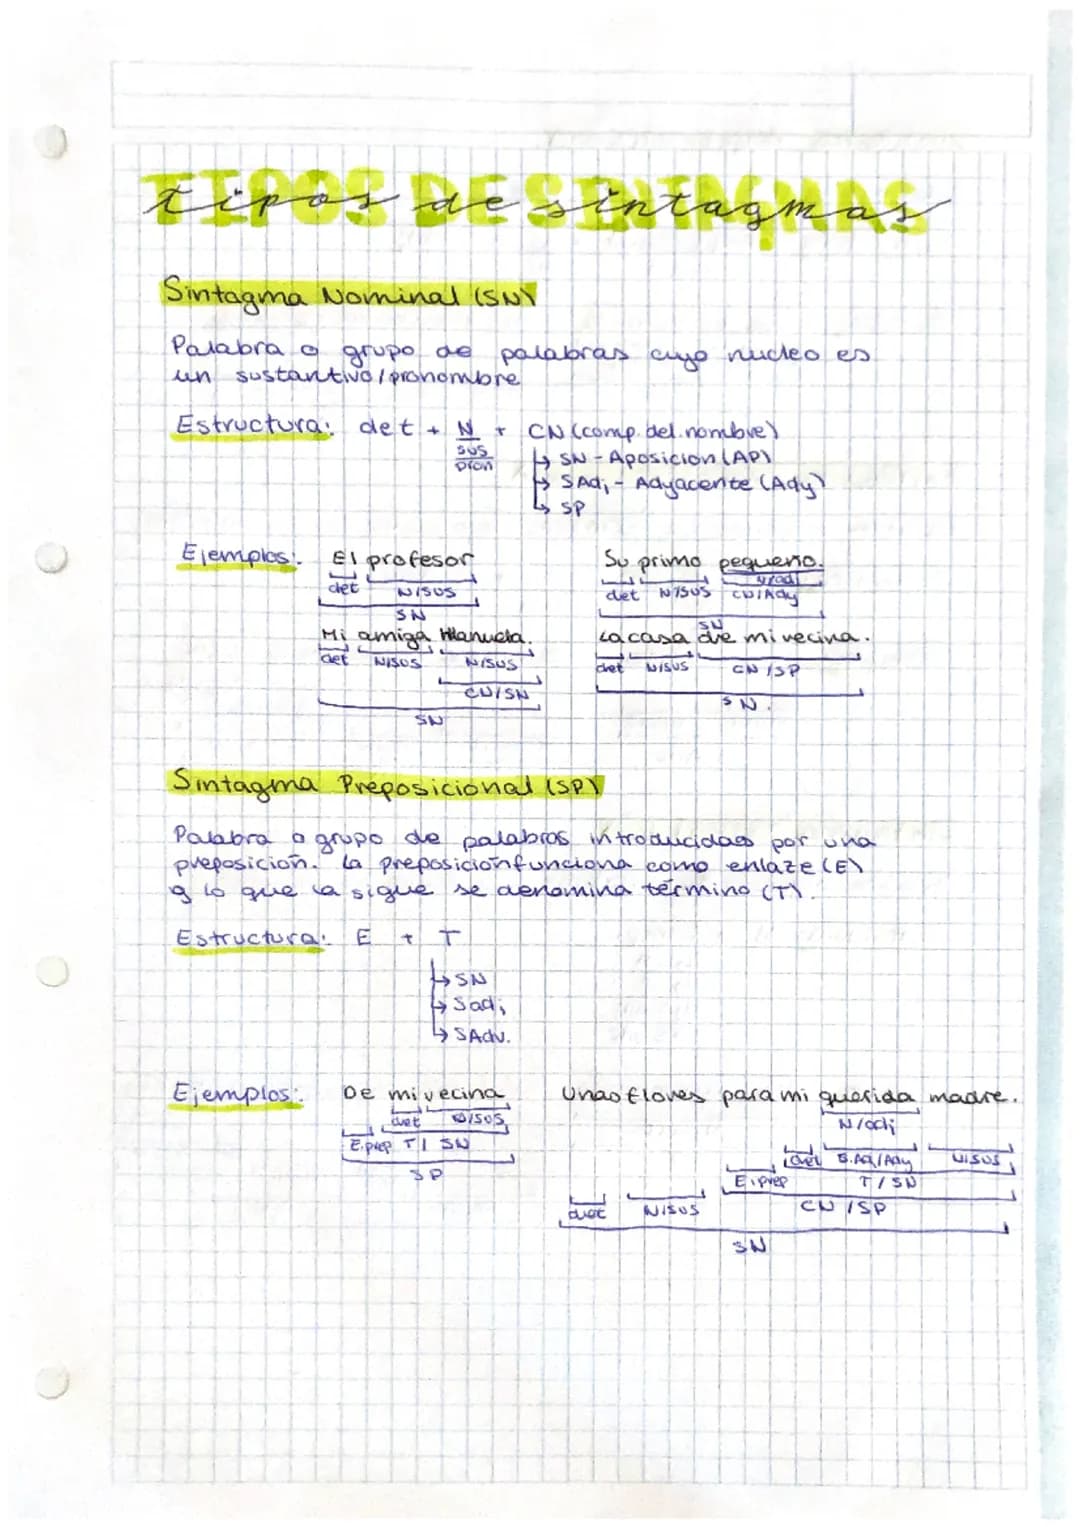 TIPOS DE SINTAGMAS
tipos de sintagmas
Sintagma Nominal (SN)
Palabra o grupo de palabras cuyo nucleo es
un sustantivo/pronombre
Estructura: det + N + CN (comp. del nombre)
sus
pron
↳ SN - Aposicion (AP)
↳ SAdj - Adyacente (Ady)
↳ SP
Ejemplos: El profesor
det N/sus
SN
Su primo pequeno.
N/adj
det N/sus CN/Ady
SN
Mi amiga Manuela.
det N/sus N/sus
CN/SN
SN
La casa de mi vecina.
det N/sus CN/SP
SN.
Sintagma Preposicional (SP)
Palabra o grupo de palabras introducidas por una
preposicion. La preposición funciona como enlaze (E)
y lo que la sigue se denomina término (T).
Estructura: E + T
↳ SN
↳ Sadj
↳ SAdv.
Ejemplos: De mi vecina
det N/sus
E.prep T/SN
SP
Unas flores para mi querida madre.
N/adj
det S.Adj/Ady N/sus
E.prep T/SN
det N/sus CN/SP
SN